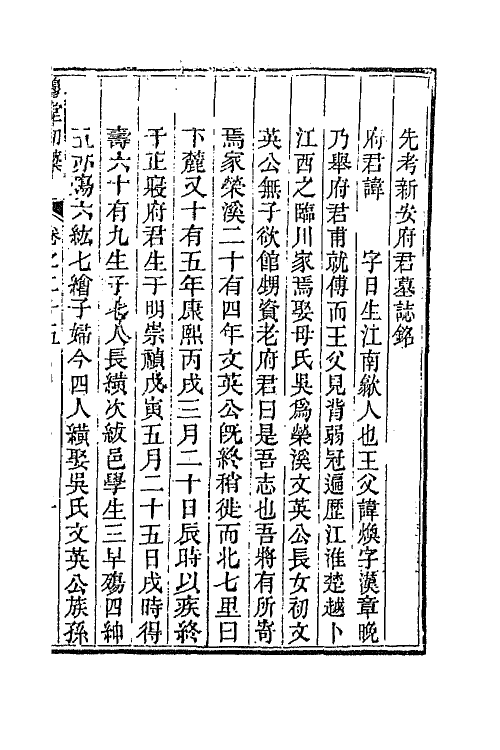 先考新安府君墓誌銘
府君諱 字日生江南歙人也王父諱煥字漢章晚
乃舉府君甫就傅而王父見背弱冠遍歷江淮楚越卜
江西之臨川家焉娶母氏吳爲榮溪文英公長女初文
英公無子欲館甥資老府君曰是吾志也吾將有所寄
焉家榮溪二十有四年文英公旣終稍徙而北七里曰
下麓又十有五年康熙丙戌三月二十日辰時以疾終
于正寢府君生于明崇禎戊寅五月二十五日戌時得
壽六十有九生子七人長績次紱邑學生三早殤四紳
五亦殤六紘七繪子婦今四人績娶吳氏文英公族孫
初藁
卷之二十五